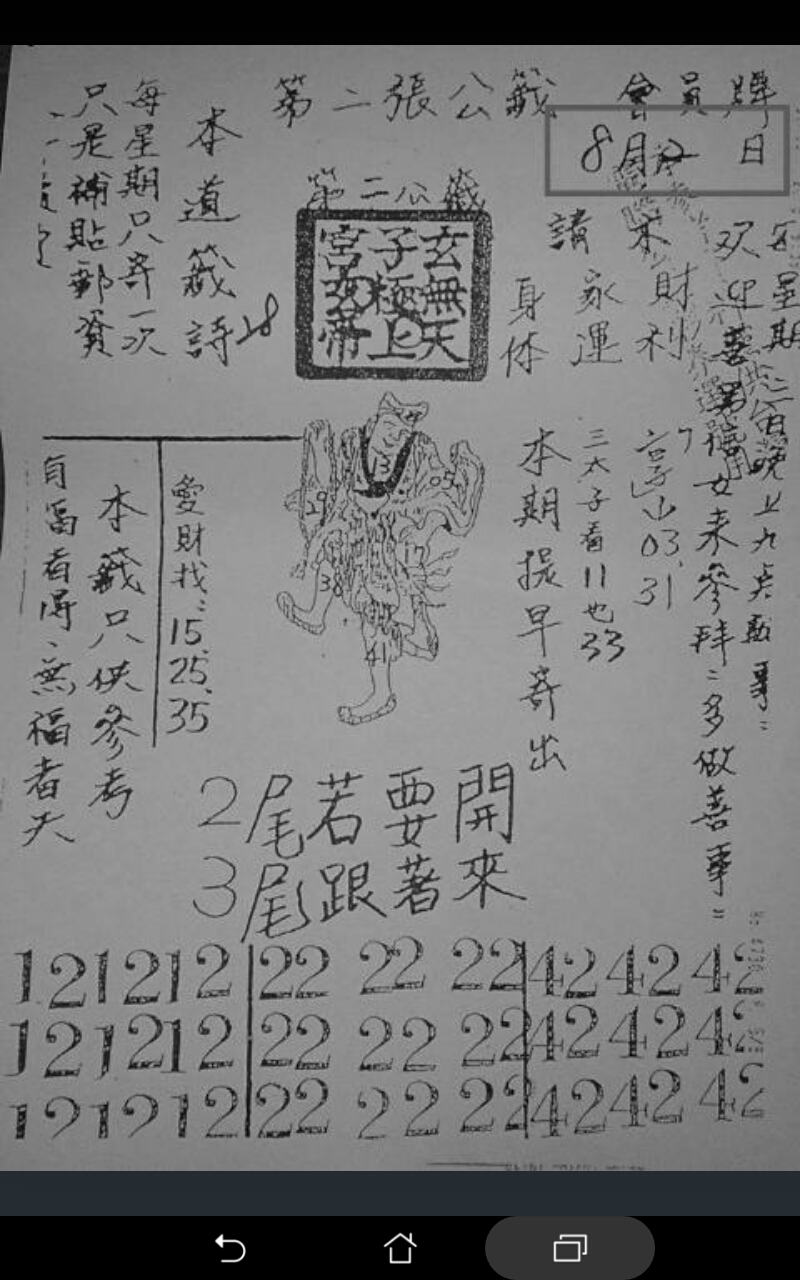 第二張公籤
會員牌
8月12日
第二公籤
玄無天
子極上
宮玄帝
本道籤詩 28
每星期只寄一次
只是補貼郵資
請
身体
家運
求財利
每星期
欢迎善男信女来參拜：多做善事：
三太子看11也33
03、31
本期提早寄出
13
05
29
17
38
41
愛財找：15、25、35
本籤只供參考
自富者得、無福者失
2尾若要開
3尾跟著來
12 12 12 22 22 22 42 42 42
12 12 12 22 22 22 42 42 42
12 12 12 22 22 22 42 42 42